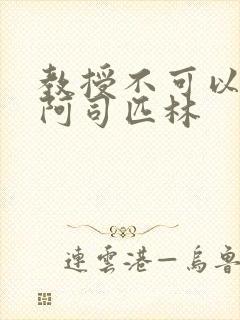 教授不可以
阿司匹林
連雲港—烏魯